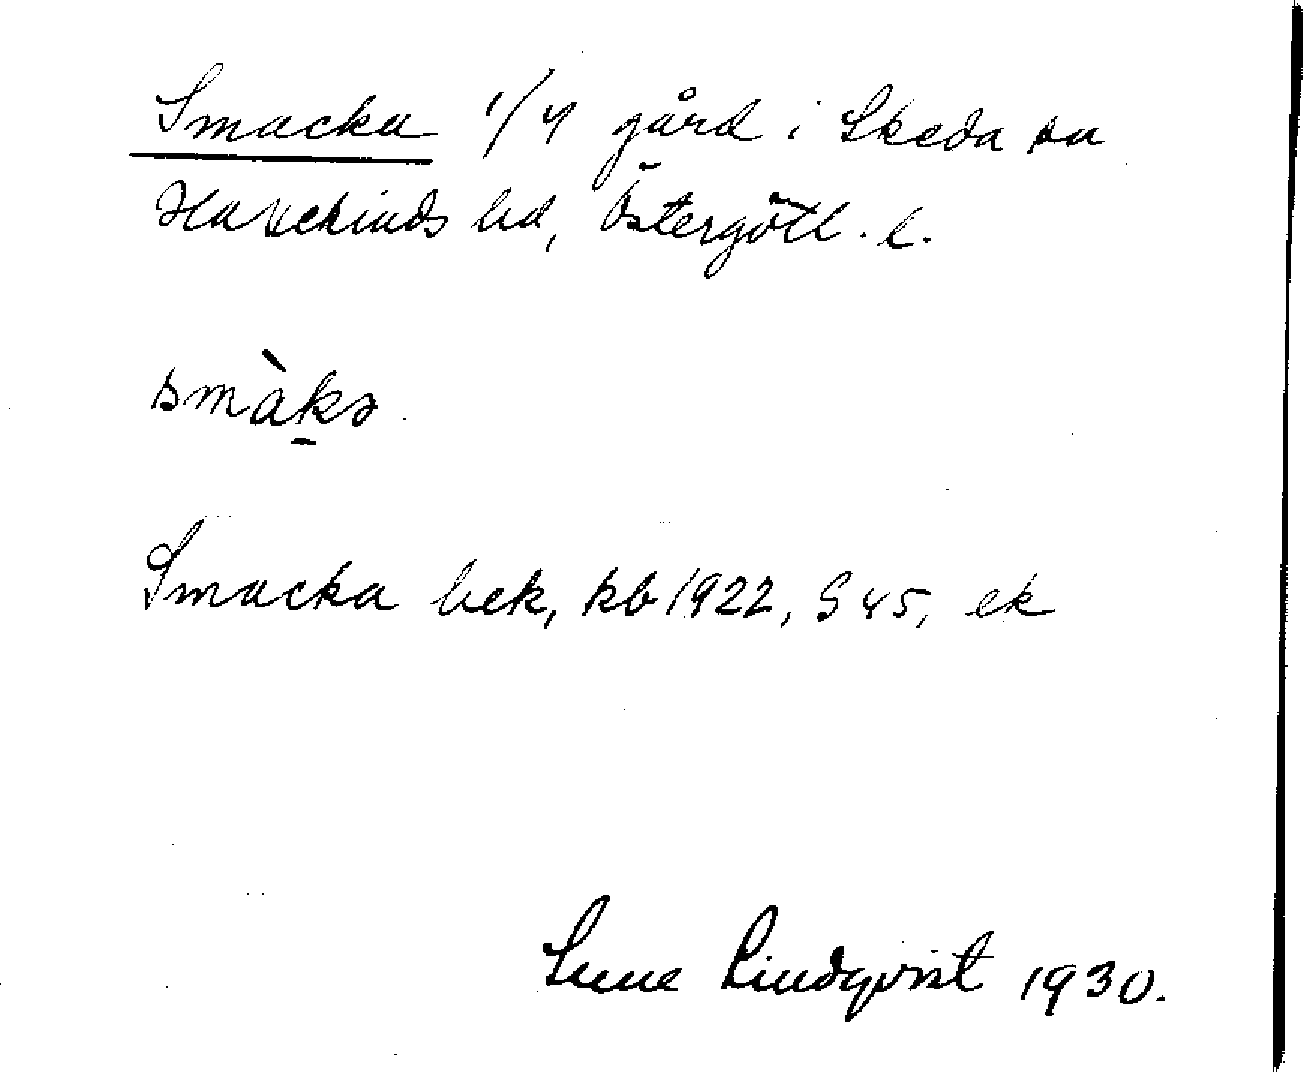 Smacka 1/4 gård i Skeda sn
Hanekinds hd, Östergötl. l.
smàkə
Smacka bek, kb 1922, § 45, ek
Sune Lindqvist 1930.